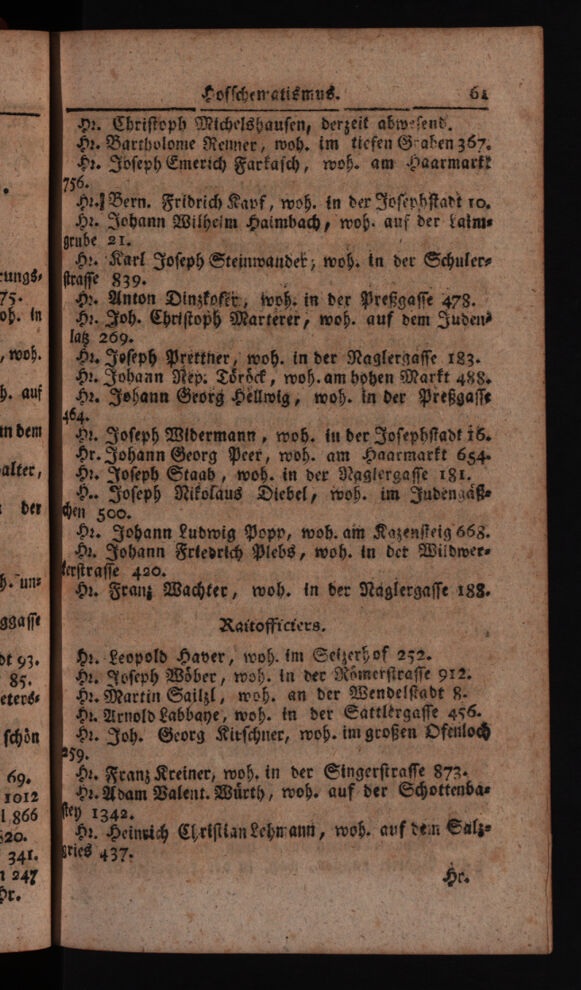 Hofschematismus. 61
Hr. Christoph Michelshausen, derzeit abwesend.
Hr. Bartholome Renner, woh. im tiefen Graben 367.
Hr. Joseph Emerich Farkasch, woh. am Haarmarkt
756.
Hr. Bern. Fridrich Kapf, woh. in der Josephstadt 10.
Hr. Johann Wilhelm Haimbach, woh. auf der Laim-
grube 21.
Hr. Karl Joseph Steinwander, woh. in der Schuler-
strasse 839.
Hr. Anton Dinzkofer, woh. in der Preßgasse 478.
Hr. Joh. Christoph Marterer, woh. auf dem Juden-
latz 269.
Hr. Joseph Prettner, woh. in der Naglergasse 183.
Hr. Johann Nep. Töröck, woh. am hohen Markt 488.
Hr. Johann Georg Hellwig, woh. in der Preßgasse
464.
Hr. Joseph Widermann, woh. in der Josephstadt 16.
Hr. Johann Georg Peer, woh. am Haarmarkt 654.
Hr. Joseph Staab, woh. in der Naglergasse 181.
H.. Joseph Nikolaus Diebel, woh. im Judengäß-
chen 500.
Hr. Johann Ludwig Popp, woh. am Kazensteig 668.
Hr. Johann Friedrich Plebs, woh. in der Wildwer-
kerstrasse 420.
Hr. Franz Wachter, woh. in der Naglergasse 188.
Raitofficiers.
Hr. Leopold Haver, woh. im Seizerhof 252.
Hr. Joseph Wöber, woh. in der Römerstrasse 912.
Hr. Martin Sailzl, woh. an der Wendelstadt 8.
Hr. Arnold Labbaye, woh. in der Sattlergasse 456.
Hr. Joh. Georg Kirschner, woh. im großen Ofenloch
259.
Hr. Franz Kreiner, woh. in der Singerstrasse 873.
Hr. Adam Valent. Würth, woh. auf der Schottenba-
stey 1342.
Hr. Heinrich Christian Lehmann, woh. auf dem Salz-
gries 437.
Hr.